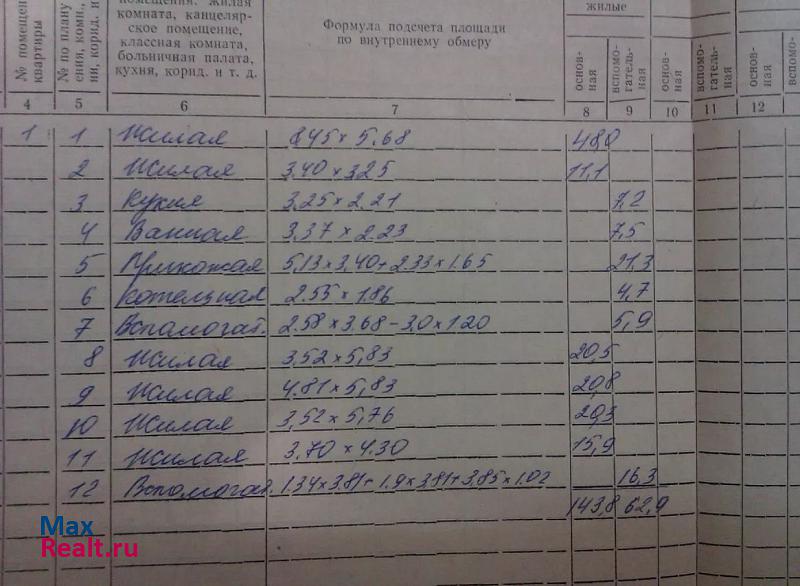 № помещен квартиры
№ по плану
ения, комн.,
ни, корид. и
помещения: жилая
комната, канцеляр-
ское помещение,
классная комната,
больничная палата,
кухня, корид. и т. д.
Формула подсчета площади
по внутреннему обмеру
жилые
основ-
ная
вспомо-
гатель-
ная
основ-
ная
вспомо-
гатель-
ная
основ-
ная
вспомо-
4 5 6 7 8 9 10 11 12
1 1 Жилая 8.45 × 5.68 48,0
2 Жилая 3.40 × 3.25 11,1
3 Кухня 3.25 × 2.21 7,2
4 Ванная 3.37 × 2.23 7,5
5 Прихожая 5,13 × 3,40 + 2.33 × 1.65 21,3
6 Котельная 2.55 × 1.86 4,7
7 Вспамогат. 2.58 × 3.68 – 3,0 × 1.20 5,9
8 Жилая 3,52 × 5,83 20,5
9 Жилая 4.81 × 5,83 20,8
10 Жилая 3,52 × 5,76 20,3
11 Жилая 3.70 × 4.30 15,9
12 Вспомогат. 1.34 × 3.81 + 1.9 × 3.81 + 3,85 × 1.02 16,3
143,8 62,9
Max
Realt.ru